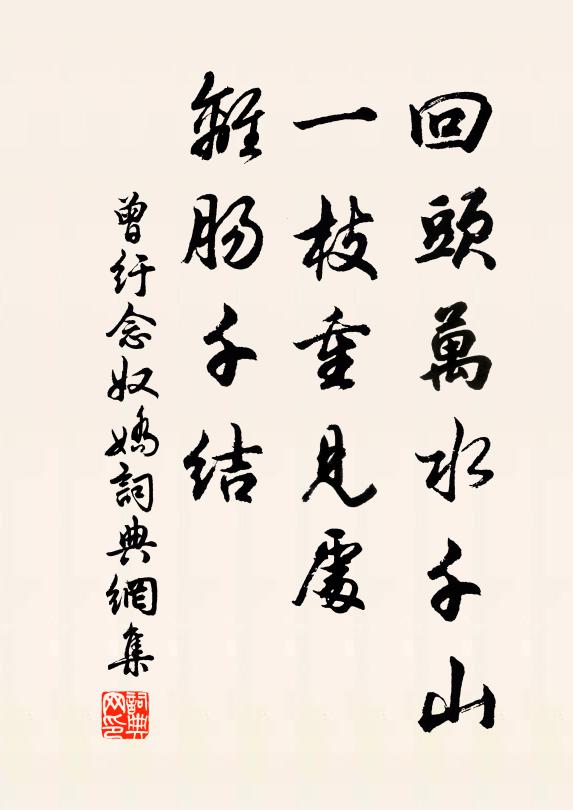 回頭萬水千山
一枝重見處
離肠千结
曾纡念奴嬌詞典網集
詞典网印